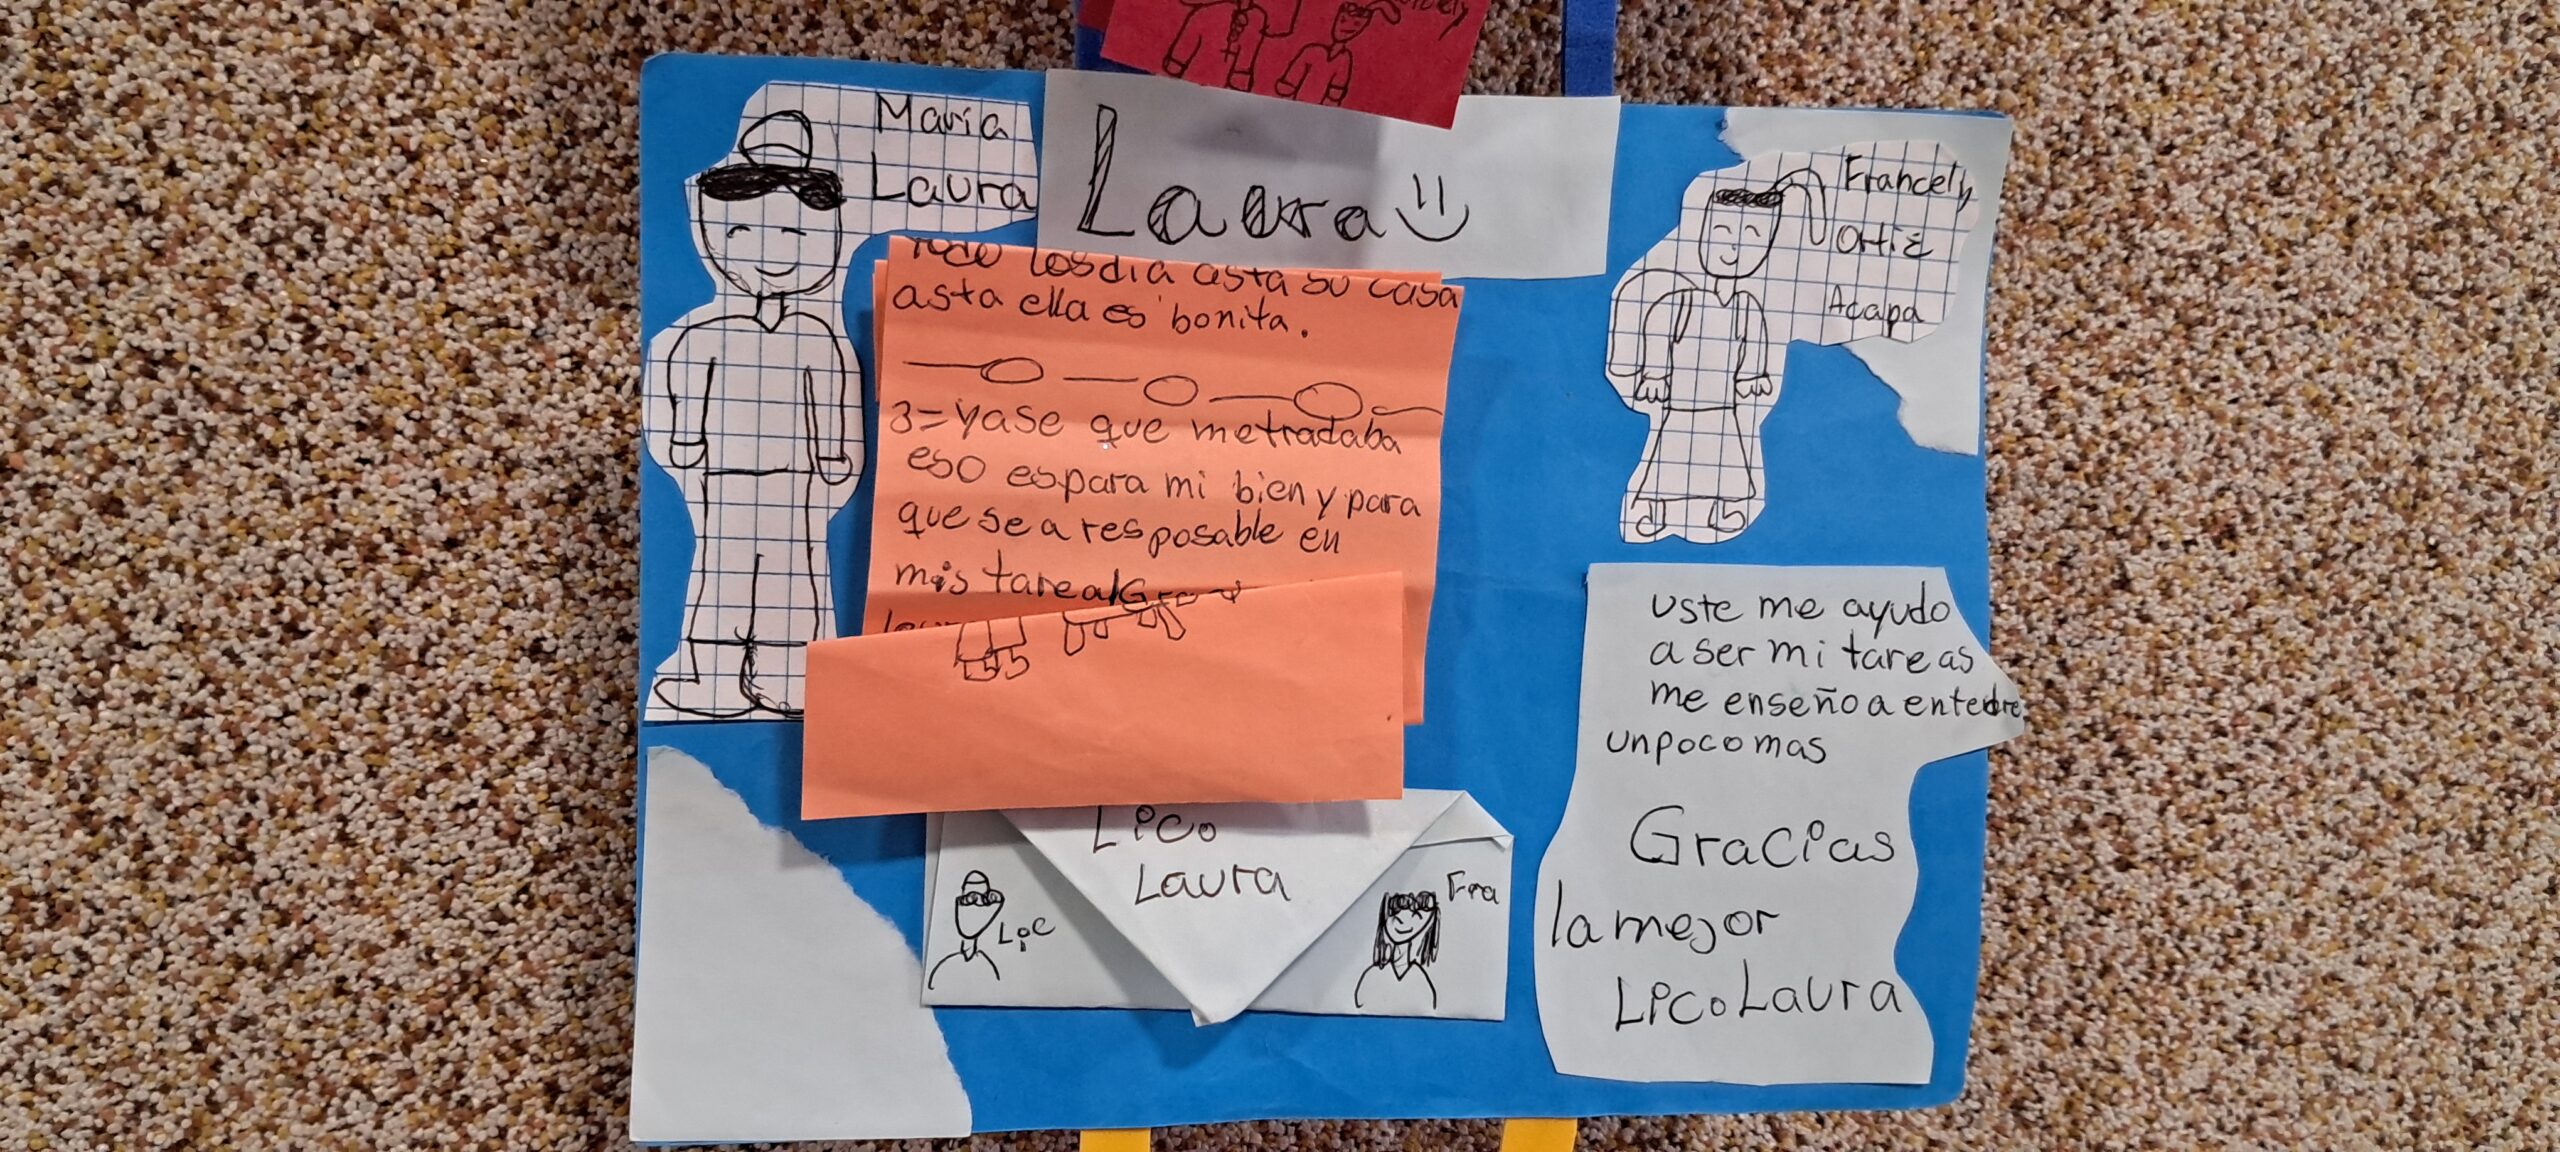 María
Laura
Laura
Francely
Ortiz
Acapa
todo los dia asta su casa
asta ella es bonita.
3= yase que metradaba
eso es para mi bien y para
que se a resposable en
mis tarea
uste me ayudo
a ser mi tareas
me enseño a entedre
un poco mas
Gracias
la mejor
Lico Laura
Lico
Laura
Lic
Fra